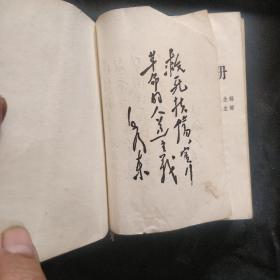 救死扶伤,实行
革命的人道主义
毛泽东
册